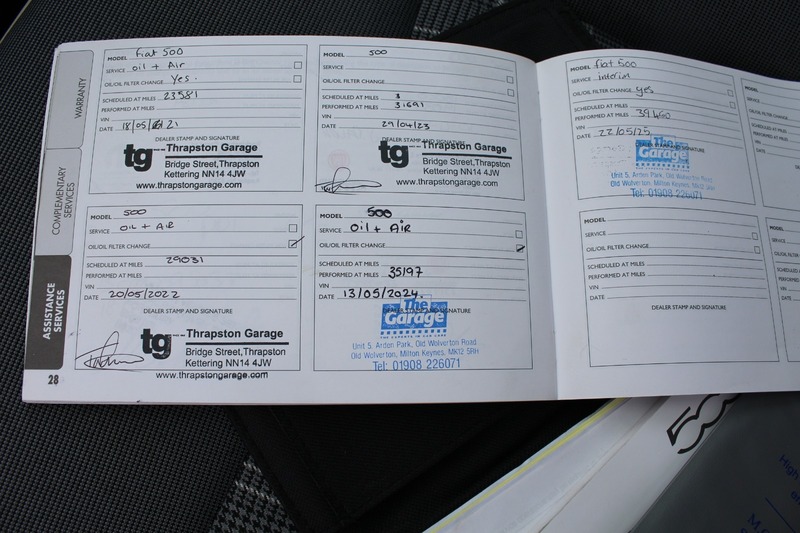 WARRANTY
COMPLEMENTARY
SERVICES
ASSISTANCE
SERVICES
28
MODEL fiat 500
SERVICE oil + Air
OIL/OIL FILTER CHANGE Yes.
SCHEDULED AT MILES 23581
PERFORMED AT MILES
VIN
DATE 18/05/21
DEALER STAMP AND SIGNATURE
tg Thrapston Garage
Bridge Street,Thrapston
Kettering NN14 4JW
www.thrapstongarage.com
MODEL 500
SERVICE OIL + AIR
OIL/OIL FILTER CHANGE
SCHEDULED AT MILES 29031
PERFORMED AT MILES
VIN
DATE 20/05/2022
DEALER STAMP AND SIGNATURE
tg Thrapston Garage
Bridge Street,Thrapston
Kettering NN14 4JW
www.thrapstongarage.com
MODEL 500
SERVICE
OIL/OIL FILTER CHANGE
SCHEDULED AT MILES 3
PERFORMED AT MILES 31691
VIN
DATE 29/04/23
DEALER STAMP AND SIGNATURE
tg Thrapston Garage
Bridge Street,Thrapston
Kettering NN14 4JW
www.thrapstongarage.com
MODEL 500
SERVICE OIL + AIR
OIL/OIL FILTER CHANGE
SCHEDULED AT MILES
PERFORMED AT MILES 35197
VIN
DATE 13/05/2024.
DEALER STAMP AND SIGNATURE
The
Garage
Unit 5, Arden Park, Old Wolverton Road
Old Wolverton, Milton Keynes, MK12 5RH
Tel: 01908 226071
MODEL fiat 500
SERVICE interim
OIL/OIL FILTER CHANGE yes
SCHEDULED AT MILES
PERFORMED AT MILES 39450
VIN
DATE 22/05/25
The
Garage
Unit 5, Arden Park, Old Wolverton Road
Old Wolverton, Milton Keynes, MK12 5RH
Tel: 01908 226071
MODEL
SERVICE
OIL/OIL FILTER CHANGE
SCHEDULED AT MILES
PERFORMED AT MILES
VIN
DATE
DEALER STAMP AND SIGNATURE
MODEL
SERVICE
VIN
DATE
500
High